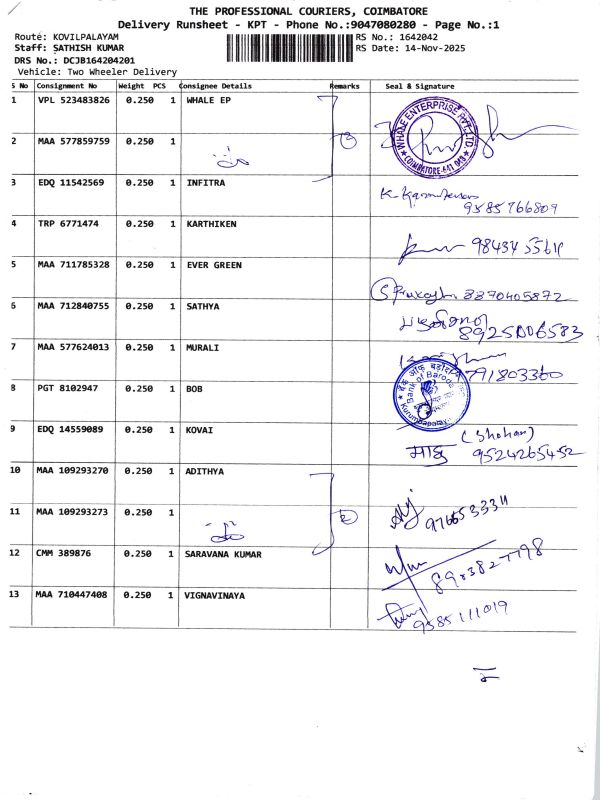 THE PROFESSIONAL COURIERS, COIMBATORE
Delivery Runsheet - KPT - Phone No.:9047080280 - Page No.:1
Route: KOVILPALAYAM RS No.: 1642042
Staff: SATHISH KUMAR RS Date: 14-Nov-2025
DRS No.: DCJB164204201
Vehicle: Two Wheeler Delivery
S No Consignment No Weight PCS Consignee Details Remarks Seal & Signature
1 VPL 523483826 0.250 1 WHALE EP
WHALE ENTERPRISE PVT LTD
COIMBATORE-641 048
2 MAA 577859759 0.250 1
3 EDQ 11542569 0.250 1 INFITRA
9585766809
4 TRP 6771474 0.250 1 KARTHIKEN
98434 55611
5 MAA 711785328 0.250 1 EVER GREEN
8870405872
6 MAA 712840755 0.250 1 SATHYA
8925006583
7 MAA 577624013 0.250 1 MURALI
791803360
8 PGT 8102947 0.250 1 BOB
बैंक ऑफ बड़ौदा
Bank of Baroda
9 EDQ 14559089 0.250 1 KOVAI
9524265452
10 MAA 109293270 0.250 1 ADITHYA
11 MAA 109293273 0.250 1
12 CMM 389876 0.250 1 SARAVANA KUMAR
13 MAA 710447408 0.250 1 VIGNAVINAYA
9585111019